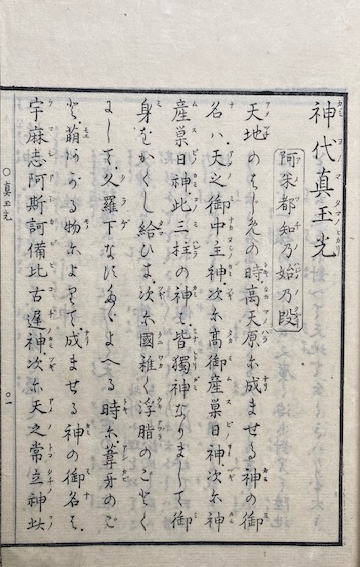 神代真玉光
阿米都知乃始乃段
天地のはじめの時高天原尓成ませる神の御
名ハ天之御中主神次尓高御産巣日神次尓神
産巣日神此三柱の神も皆獨神なりまして御
身をかくし給ひき次尓國稚く浮脂のごとく
して久羅下なすたゞよへる時尓葦牙のご
と萌あがる物によりて成ませる神の御名は
宇麻志阿斯訶備比古遅神次尓天之常立神此
○真玉光
○一